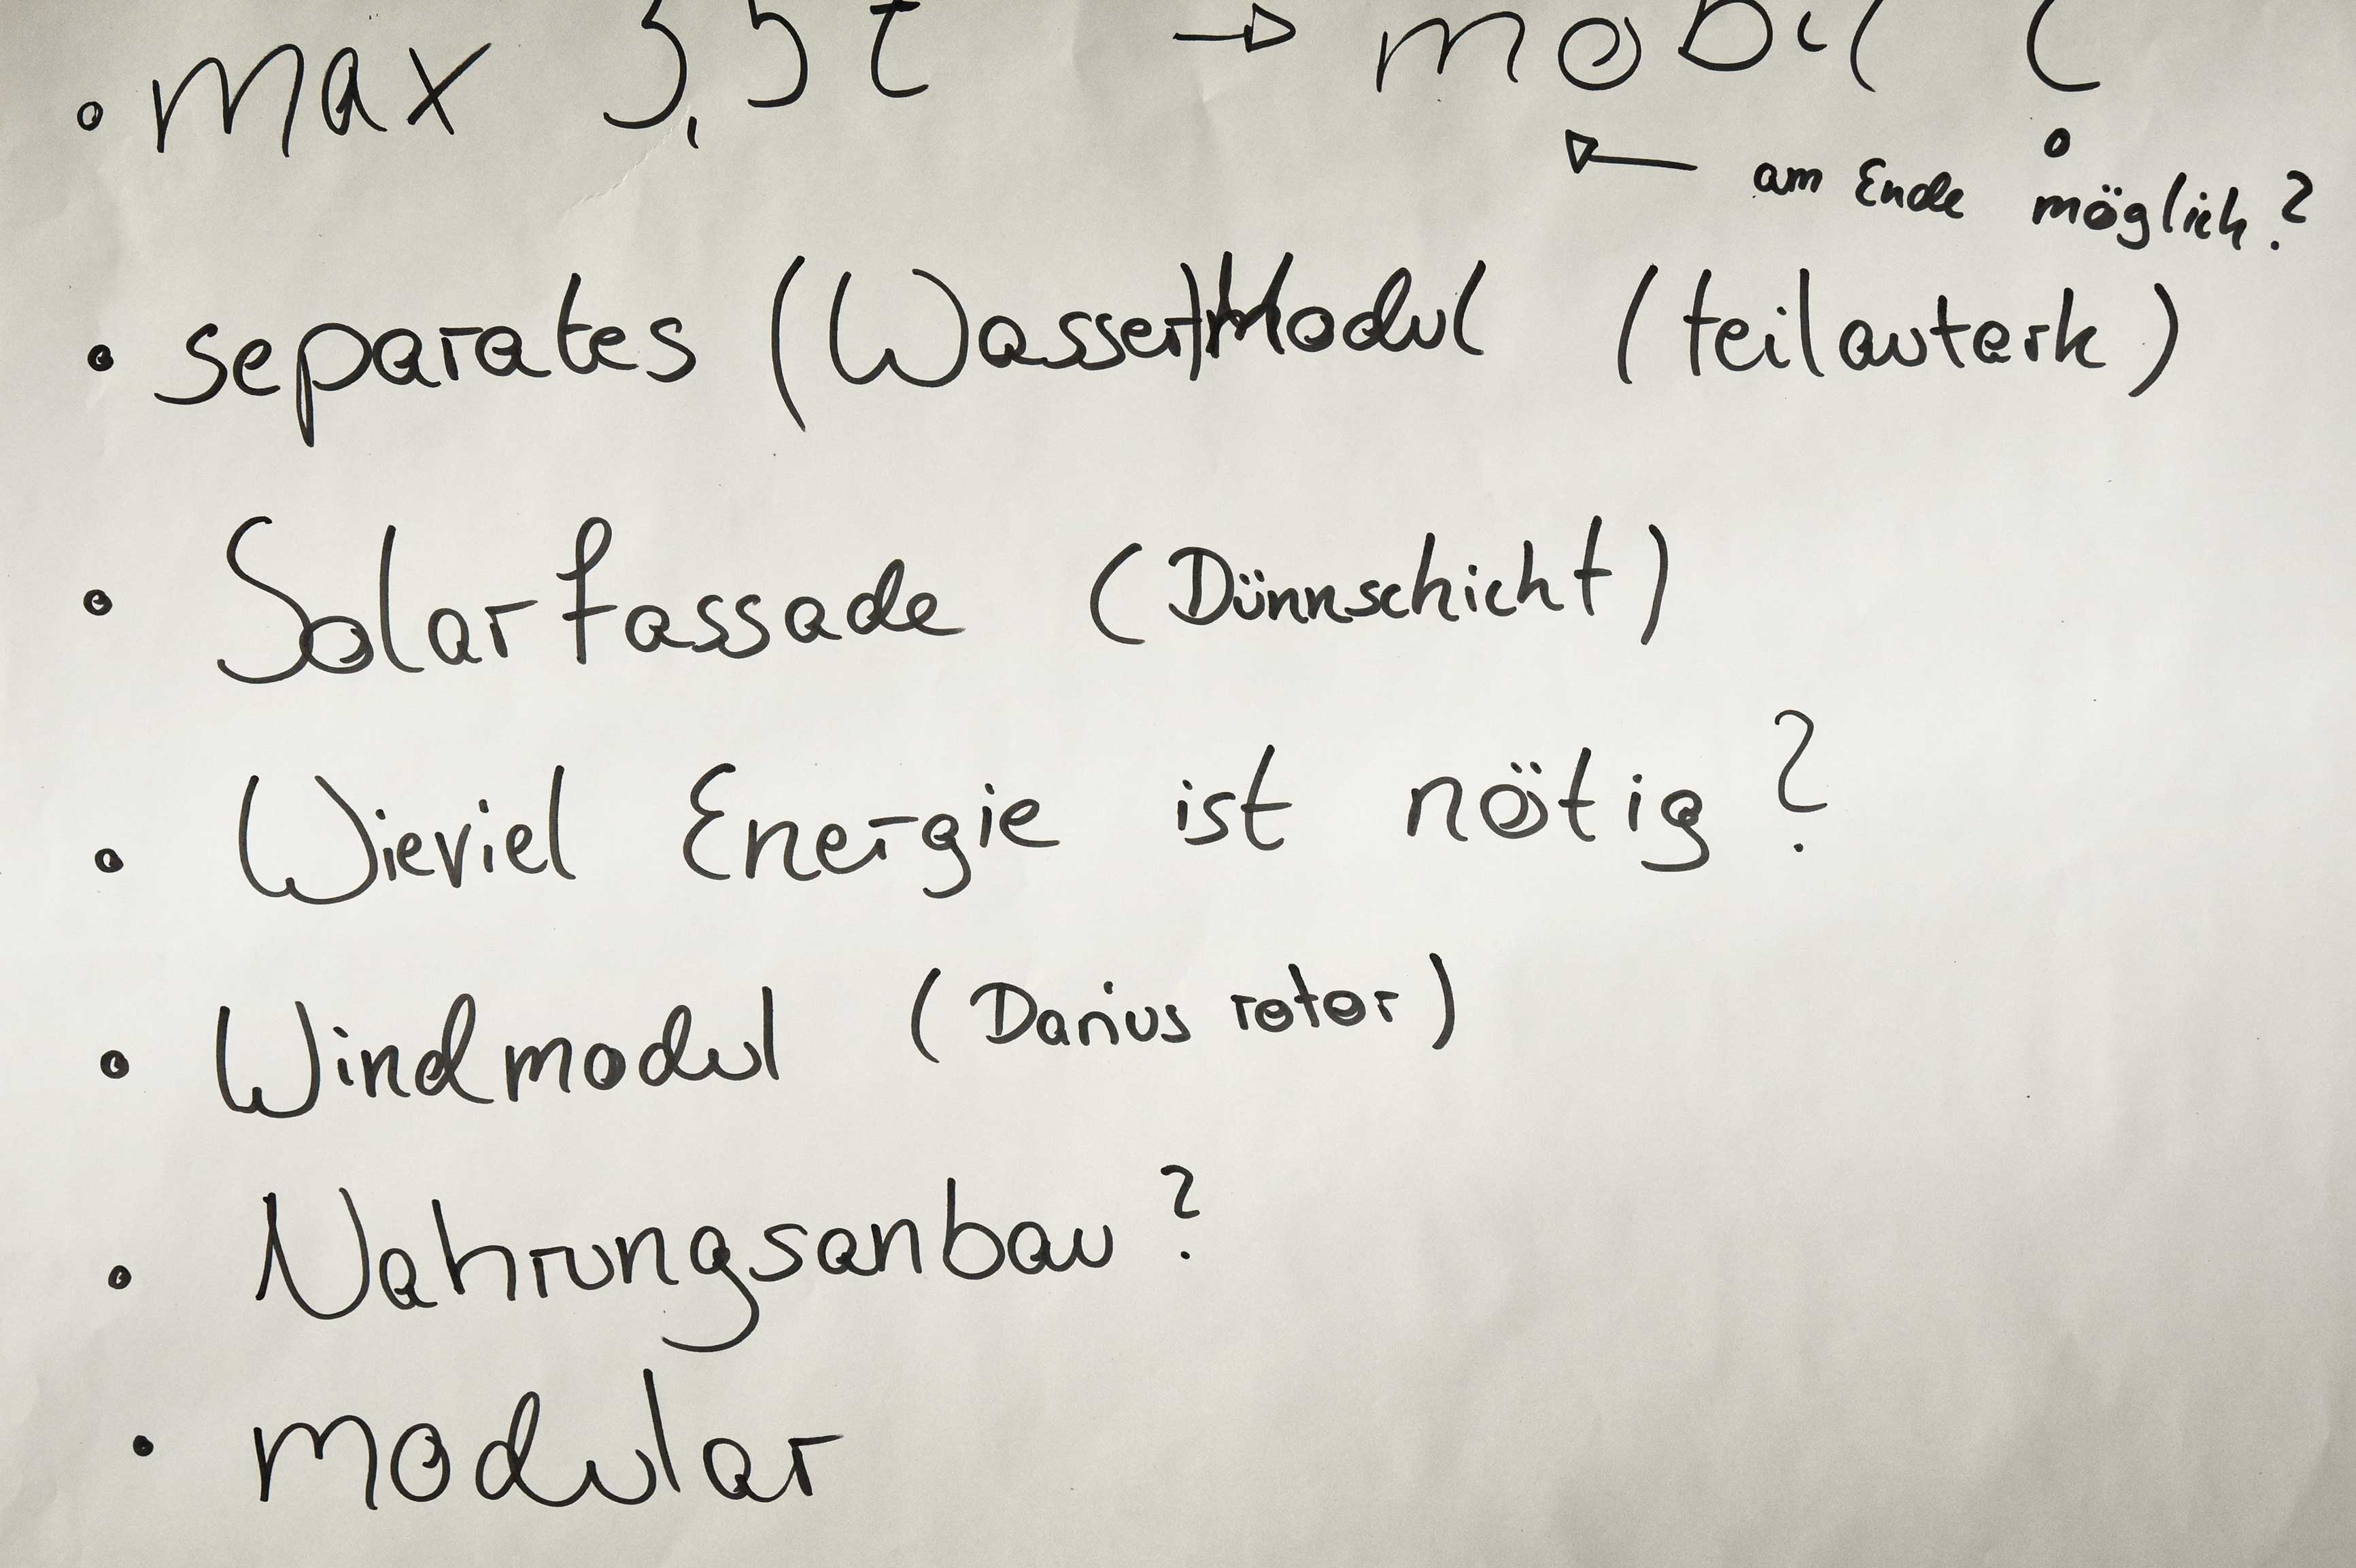 • max 3,5t → mobil ?
← am Ende möglich?
• separates (Wasser)Modul (teilautark)
• Solarfassade (Dünnschicht)
• Wieviel Energie ist nötig?
• Windmodul (Darius rotor)
• Nahrungsanbau?
• modular